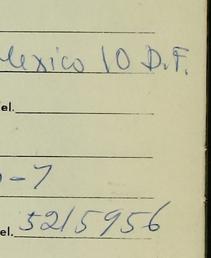 Mexico 10 D.F.
el.
-7
el. 5215956